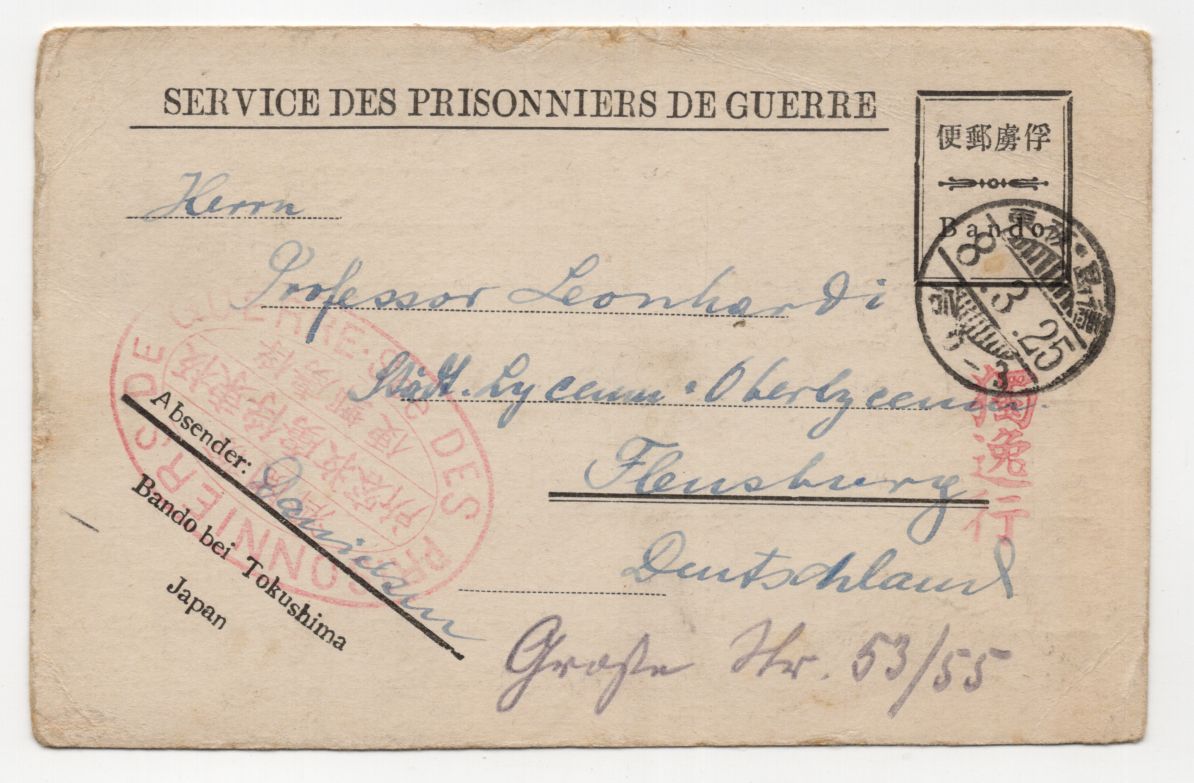 SERVICE DES PRISONNIERS DE GUERRE
便郵虜俘
Bando
8.3.25
Herrn
Professor Leonhardi
Städt. Lyceum. Oberlyceum.
Flensburg
Deutschland
Große Str. 53/55
獨逸行
Absender: Danielsen
Bando bei Tokushima
Japan
SCE DES PRISONNIERS DE GUERRE